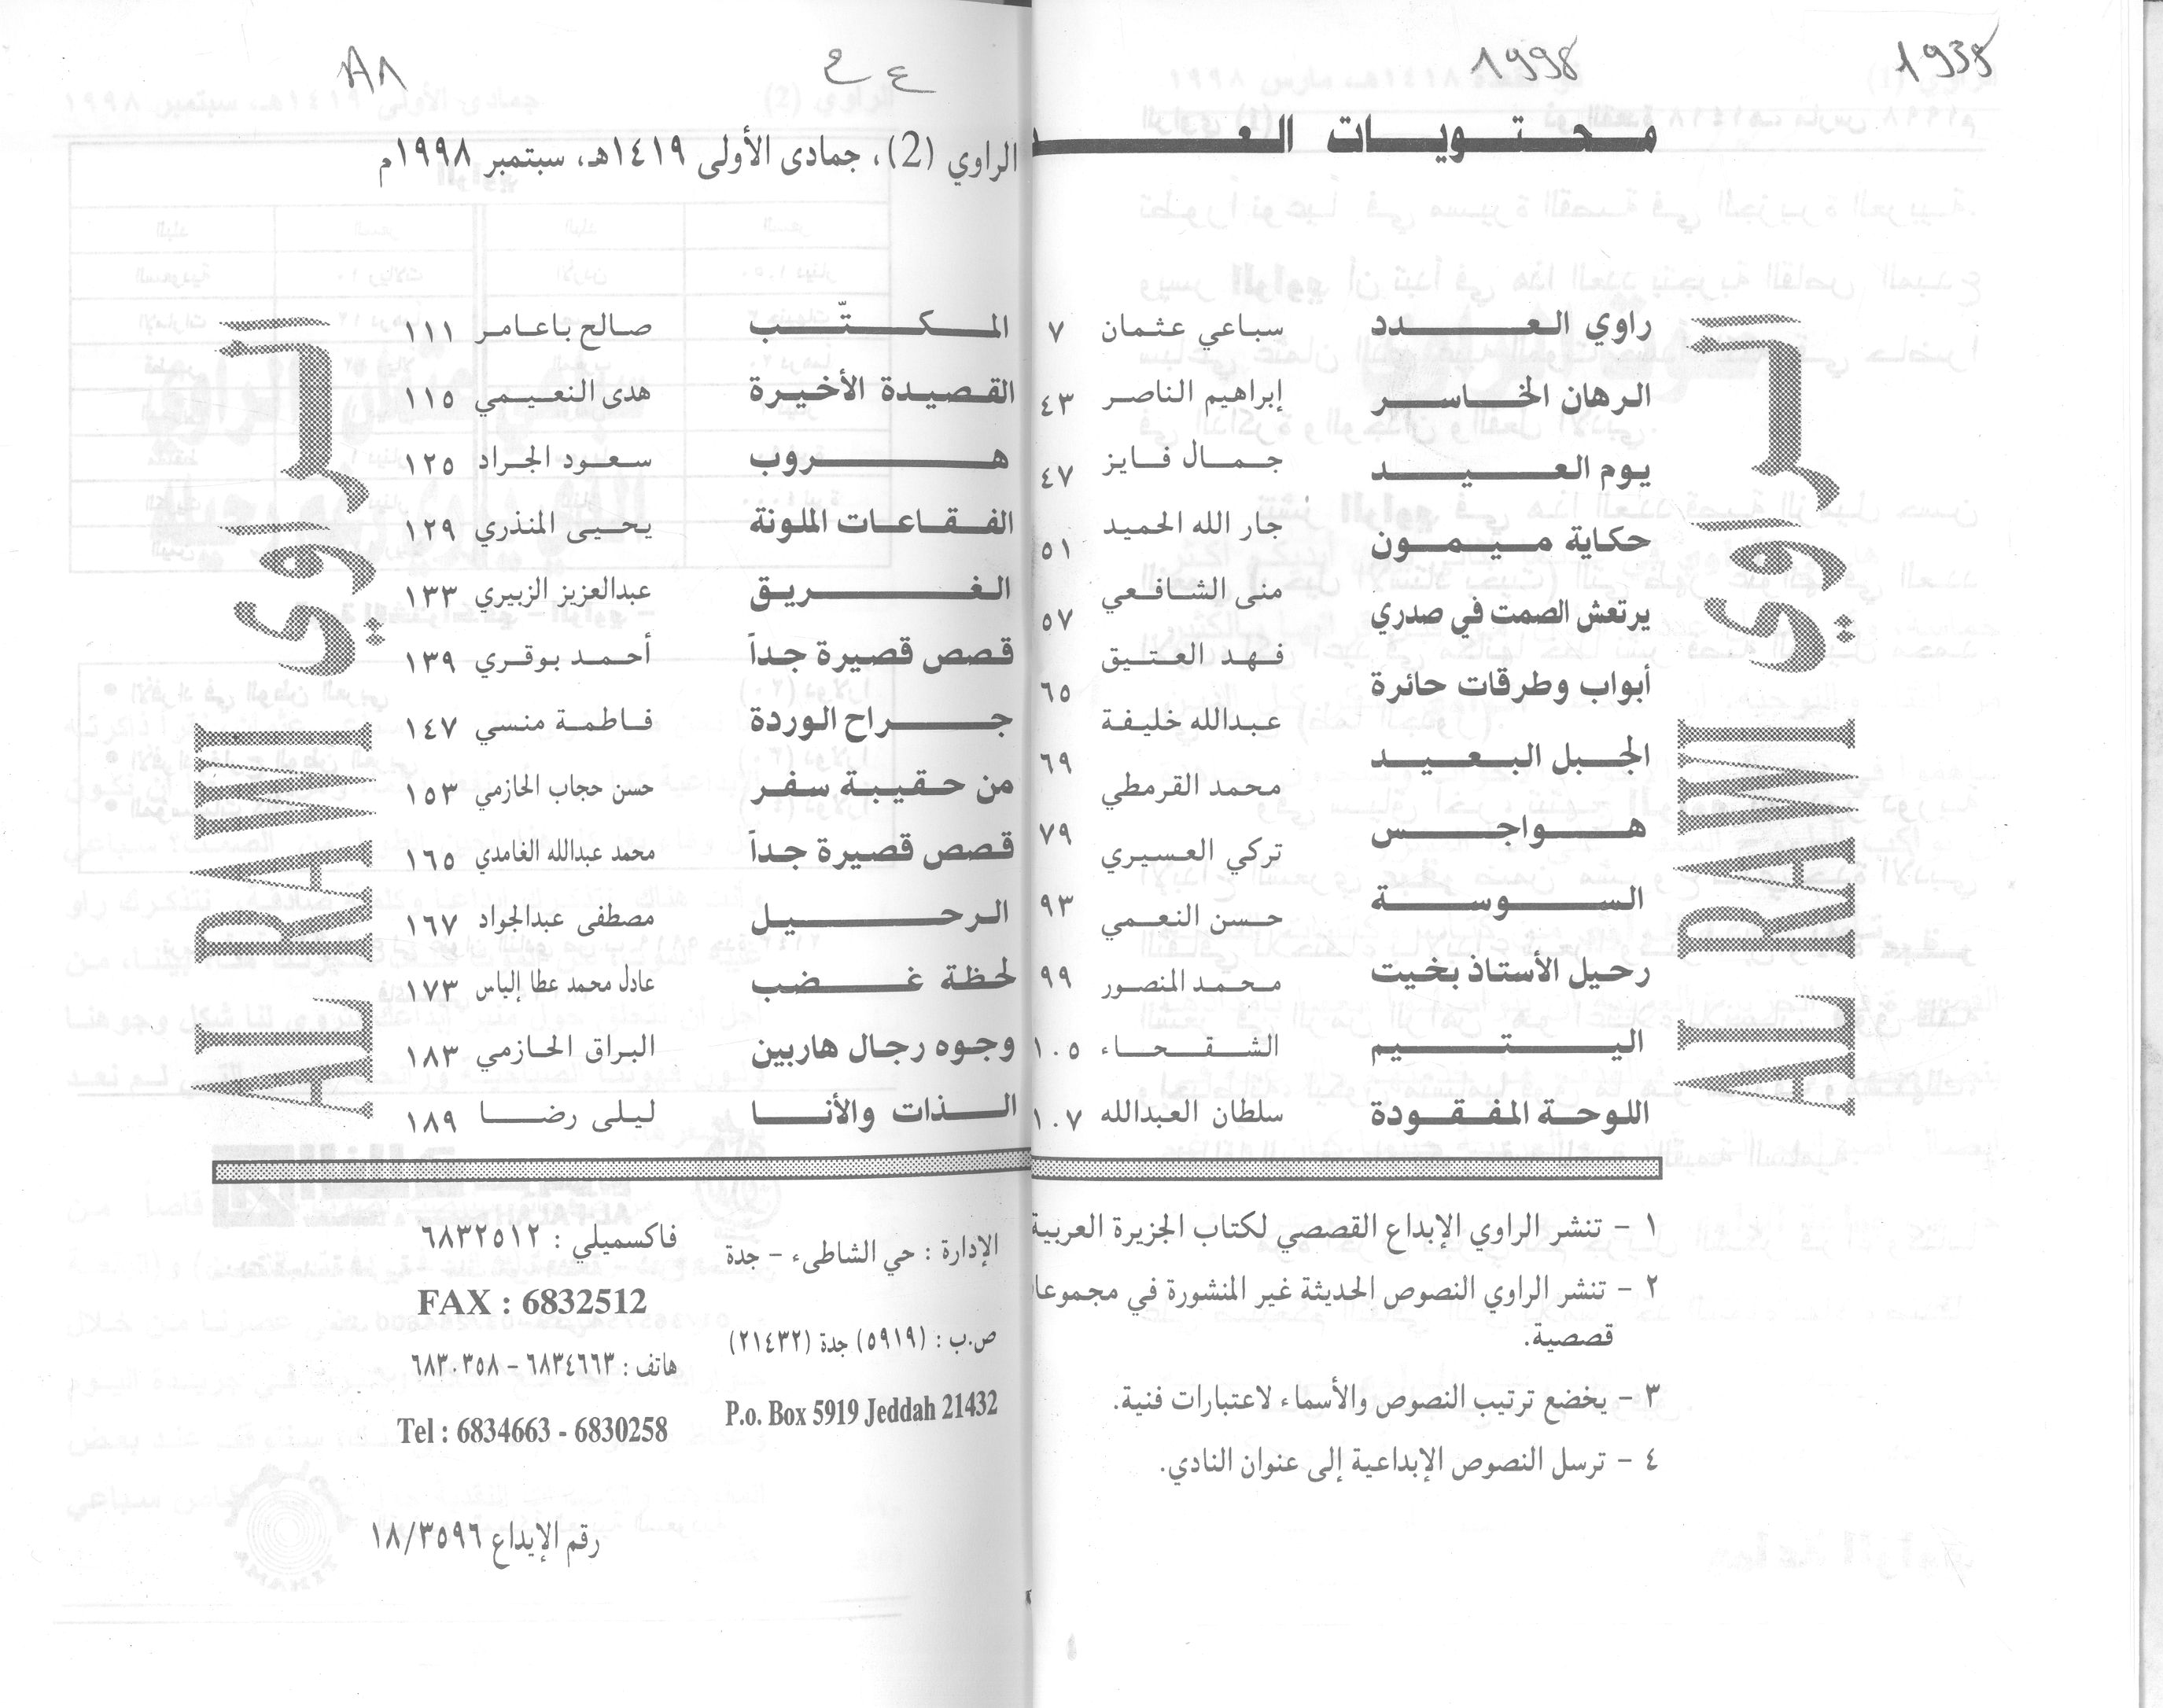 1938
1998
محتويات العـــد
راوي العـــدد سباعي عثمان ٧
الرهان الخاســر إبراهيم الناصر ٤٣
يوم العـــيـــد جمال فايز ٤٧
حكاية ميـمـون جار الله الحميد ٥١
يرتعش الصمت في صدري منى الشافعي ٥٧
أبواب وطرقات حائرة فهد العتيق ٦٥
الجبل البعيـد عبدالله خليفة ٦٩
هـــواجـــس محمد القرمطي ٧٩
الســـوســـة تركي العسيري ٩٣
رحيل الأستاذ بخيت حسن النعمي ٩٩
اليـــتـــيم محمد المنصور ١٠٥
اللوحة المفقودة الشقحاء ١٠٧
سلطان العبدالله
الراوي
AL RAWI
١ - تنشر الراوي الإبداع القصصي لكتاب الجزيرة العربية
٢ - تنشر الراوي النصوص الحديثة غير المنشورة في مجموعا
قصصية.
٣ - يخضع ترتيب النصوص والأسماء لاعتبارات فنية.
٤ - ترسل النصوص الإبداعية إلى عنوان النادي.
ع ح
٨١
الراوي (2)، جمادى الأولى ١٤١٩هـ، سبتمبر ١٩٩٨م
المـكـتّـب صالح باعامر ١١١
القصيدة الأخيرة هدى النعيمي ١١٥
هـــروب سعود الجراد ١٢٥
الفقاعات الملونة يحيى المنذري ١٢٩
الغـــريق عبدالعزيز الزبيري ١٣٣
قصص قصيرة جداً أحمد بوقري ١٣٩
جـــراح الوردة فاطمة منسي ١٤٧
من حقيبة سفر حسن حجاب الحازمي ١٥٣
قصص قصيرة جداً محمد عبدالله الغامدي ١٦٥
الرحـــيل مصطفى عبدالجواد ١٦٧
لحظة غـــضب عادل محمد عطا إلياس ١٧٣
وجوه رجال هاربين البراق الحازمي ١٨٣
الـــذات والأنـــا ليلى رضـا ١٨٩
الراوي
AL RAWI
الإدارة : حي الشاطىء - جدة
ص.ب : (٥٩١٩) جدة (٢١٤٣٢)
P.o. Box 5919 Jeddah 21432
فاكسميلي : ٦٨٣٢٥١٢
FAX : 6832512
هاتف : ٦٨٣٤٦٦٣ - ٦٨٣٠٣٥٨
Tel : 6834663 - 6830258
رقم الإيداع ١٨/٣٥٩٦